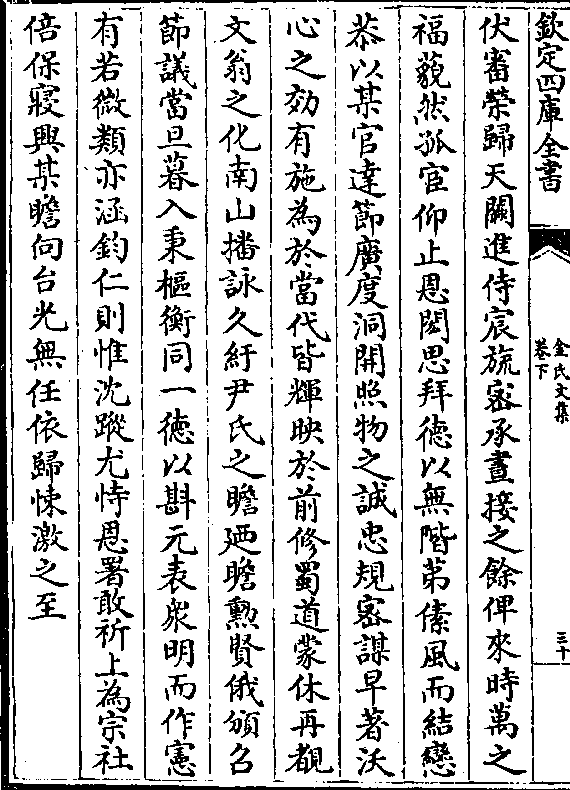 欽定四庫全書
金氏文集
卷下
三十
伏審榮歸天闕進侍宸旒密承晝接之餘俾來時萬之
福藐然孤宦仰止恩閎思拜德以無階第傃風而結戀
恭以某官達節廣度洞開照物之誠忠規密謀早著沃
心之効有施為於當代皆輝映於前修蜀道蒙休再覩
文翁之化南山播詠久紆尹氏之瞻廼瞻勲賢俄頒召
節議當旦暮入秉樞衡同一徳以斟元表衆明而作憲
有若微類亦涵鈞仁則惟沈蹤尤恃恩署敢祈上為宗社
倍保寢興某瞻向台光無任依歸悚激之至